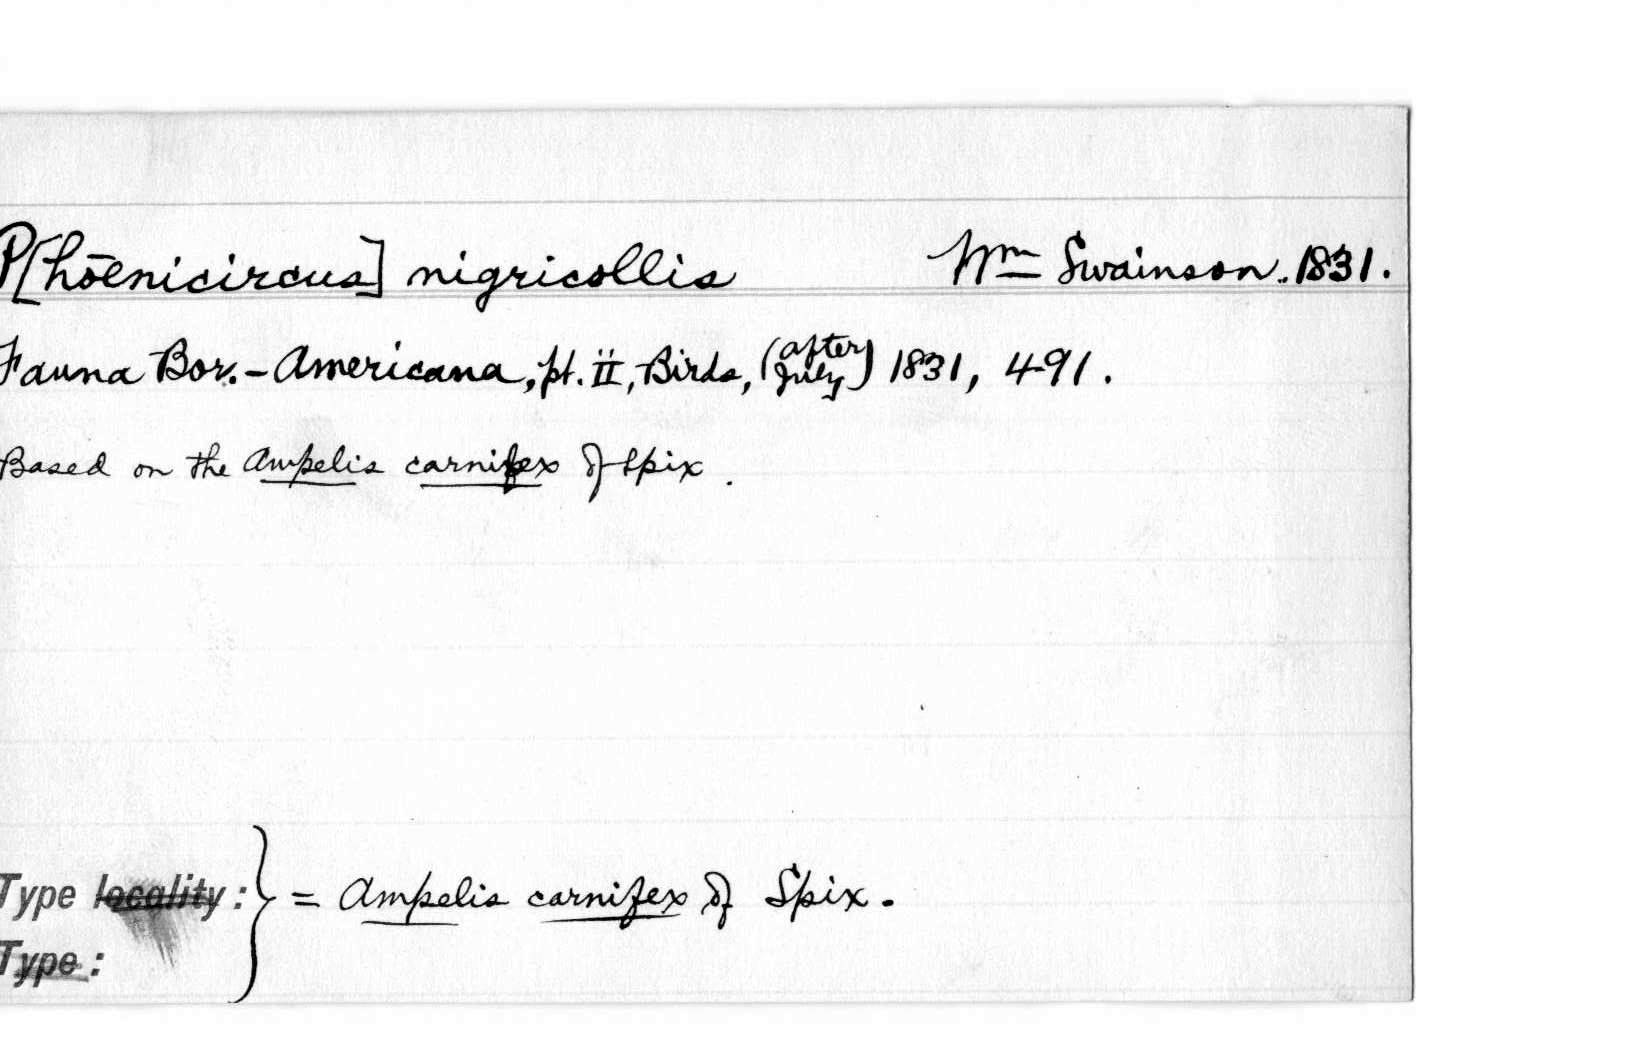 P[hōenicircus] nigricollis Wm Swainson. 1831.
Fauna Bor.-Americana, pt. II, Birds, (after July) 1831, 491.
Based on the Ampelis carnifex of Spix.
Type locality: } = Ampelis carnifex of Spix.
Type: